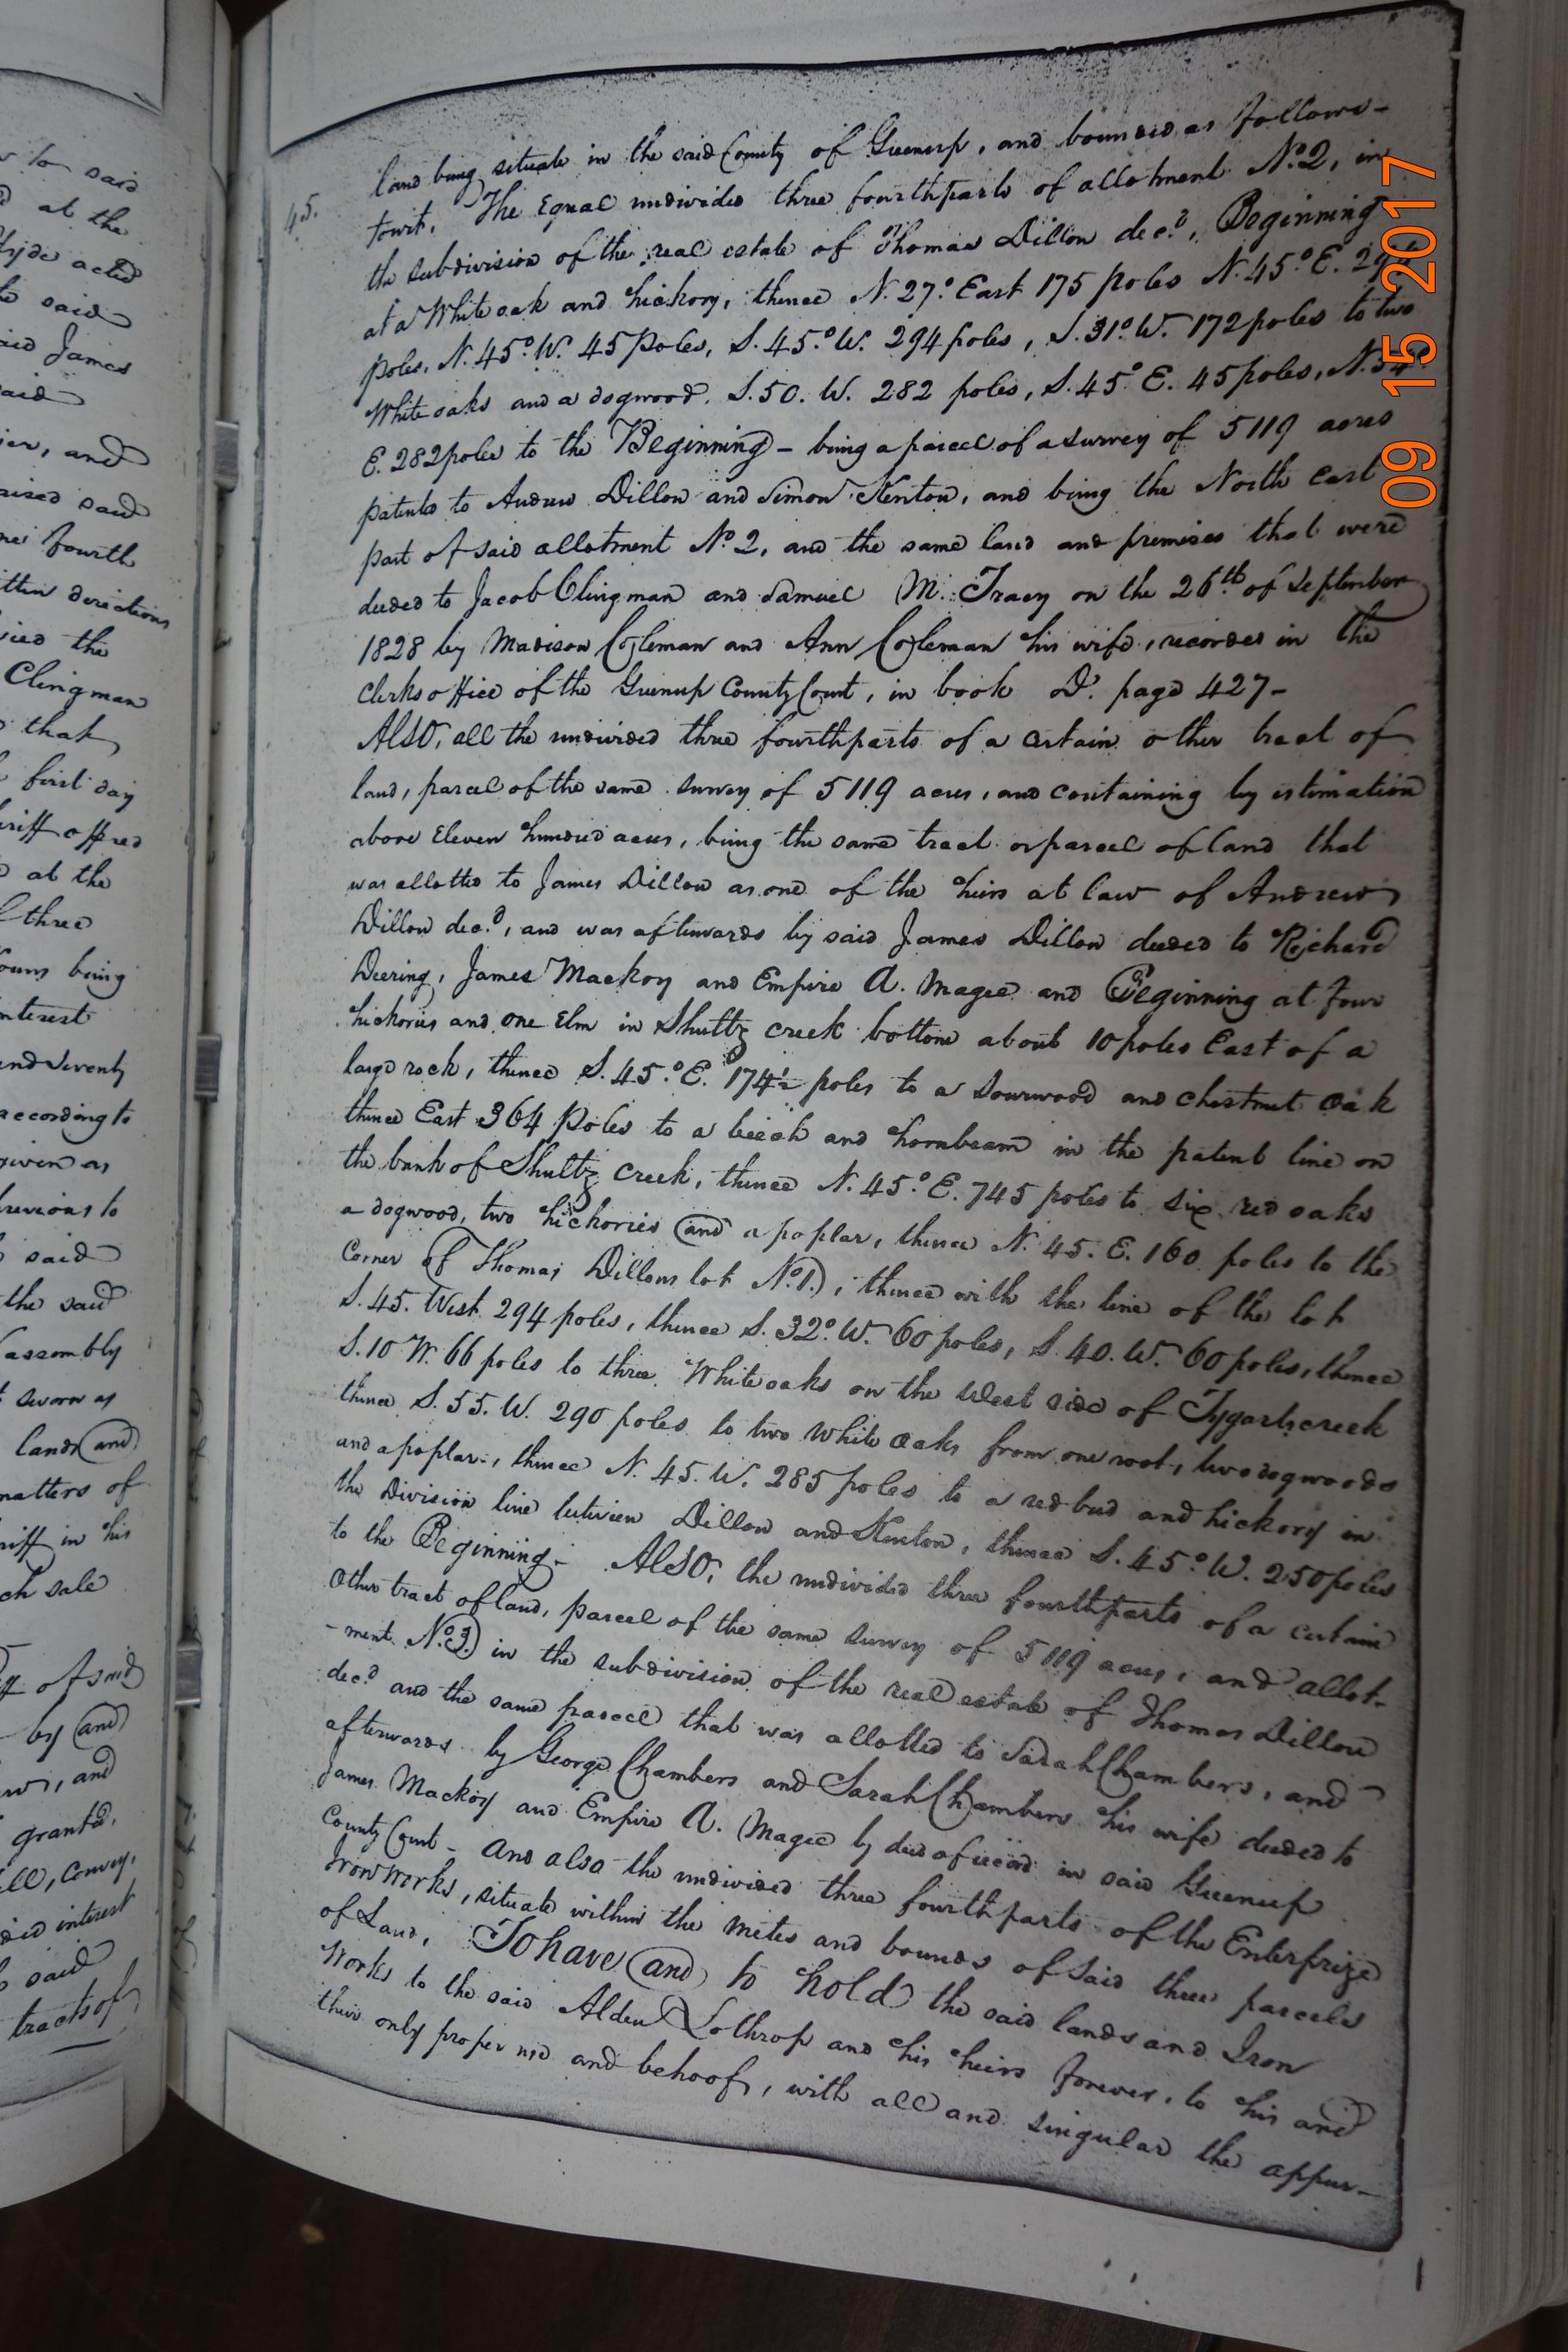 r to said
at the
Hyde acted
to said
aid James
said
ier, and
rised said
ne fourth
ittin directions
ied the
Clingman
that
first day
riff offered
at the
f three
ours being
nterest
and Seventy
according to
given as
previous to
said
the said
assembly
sworn as
lands (and)
matters of
riff in his
ch sale
ff of said
by (and)
w, and
grantd,
ell, convey,
did interest
said
tracts of
45.
land being situate in the said County of Greenup, and bounded as follows-
towit, The Equal undivided three fourthparts of allotment No. 2, in
the subdivision of the real estate of Thomas Dillon decd., Beginning
at a White oak and hickory, thence N. 27.° East 175 poles N. 45.° E. 294
poles, N. 45.° W. 45 Poles, S. 45.° W. 294 poles, S. 31.° W. 172 poles to two
White oaks and a dogwood. S. 50. W. 282 poles, S. 45.° E. 45 poles, N. 54
E. 282 poles to the Beginning - being a parcel of a survey of 5119 acres
patented to Andrew Dillon and Simon Kenton, and being the North East
part of said allotment No 2, and the same land and premises that were
deeded to Jacob Clingman and Samuel M. Tracy on the 26th of September
1828 by Madison Coleman and Ann Coleman his wife, recorded in the
Clerks office of the Greenup County Court, in book D. page 427-
Also, all the undivided three fourthparts of a certain other tract of
land, parcel of the same survey of 5119 acres, and containing by estimation
above Eleven hundred acres, being the same tract or parcel of land that
was allotted to James Dillon as one of the heirs at law of Andrew
Dillon decd., and was afterwards by said James Dillon deeded to Richard
Deering, James Mackoy and Empire A. Magee and Beginning at four
hickories and one Elm in Shultz creek bottom about 10 poles East of a
large rock, thence S. 45.° E. 174½ poles to a Sourwood and chestnut oak
thence East 364 Poles to a beech and hornbeam in the patent line on
the bank of Shultz Creek, thence N. 45.° E. 745 poles to six red oaks
a dogwood, two hickories (and) a poplar, thence N. 45. E. 160 poles to the
Corner of Thomas Dillons lot No. 1.), thence with the line of the lot
S. 45. West 294 poles, thence S. 32.° W. 60 poles, S. 40. W. 60 poles, thence
S. 10 W. 66 poles to three White oaks on the West side of Tygarts creek
thence S. 55. W. 290 poles to two White oaks from one root, two dogwoods
and a poplar, thence N. 45. W. 285 poles to a red bud and hickory in
the Division line between Dillon and Kenton, thence S. 45° W. 250 poles
to the Beginning - Also, the undivided three fourthparts of a certain
Other tract of land, parcel of the same survey of 5119 acres, and allot-
-ment No. 3.) in the subdivision of the real estate of Thomas Dillon
decd and the same parcel that was allotted to Sarah Chambers, and
afterwards by George Chambers and Sarah Chambers his wife deeded to
James Mackoy and Empire A. Magee by deed of record in said Greenup
County Court - And also the undivided three fourth parts of the Enterprize
Iron Works, situate within the metes and bounds of said three parcels
of Land, To have (and) to hold the said lands and Iron
Works to the said Alden Lothrop and his heirs forever, to his and
their only proper use and behoof, with all and singular the appur-
09 15 2017